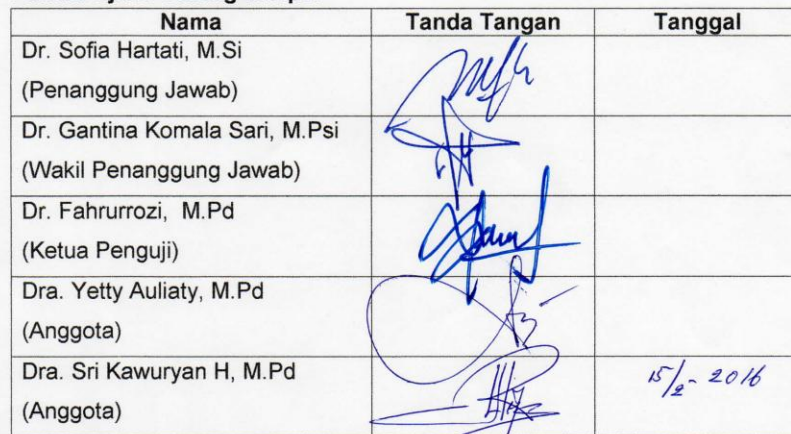 Nama Tanda Tangan Tanggal
Dr. Sofia Hartati, M.Si
(Penanggung Jawab)
Dr. Gantina Komala Sari, M.Psi
(Wakil Penanggung Jawab)
Dr. Fahrurrozi, M.Pd
(Ketua Penguji)
Dra. Yetty Auliaty, M.Pd
(Anggota)
Dra. Sri Kawuryan H, M.Pd 15/2- 2016
(Anggota)